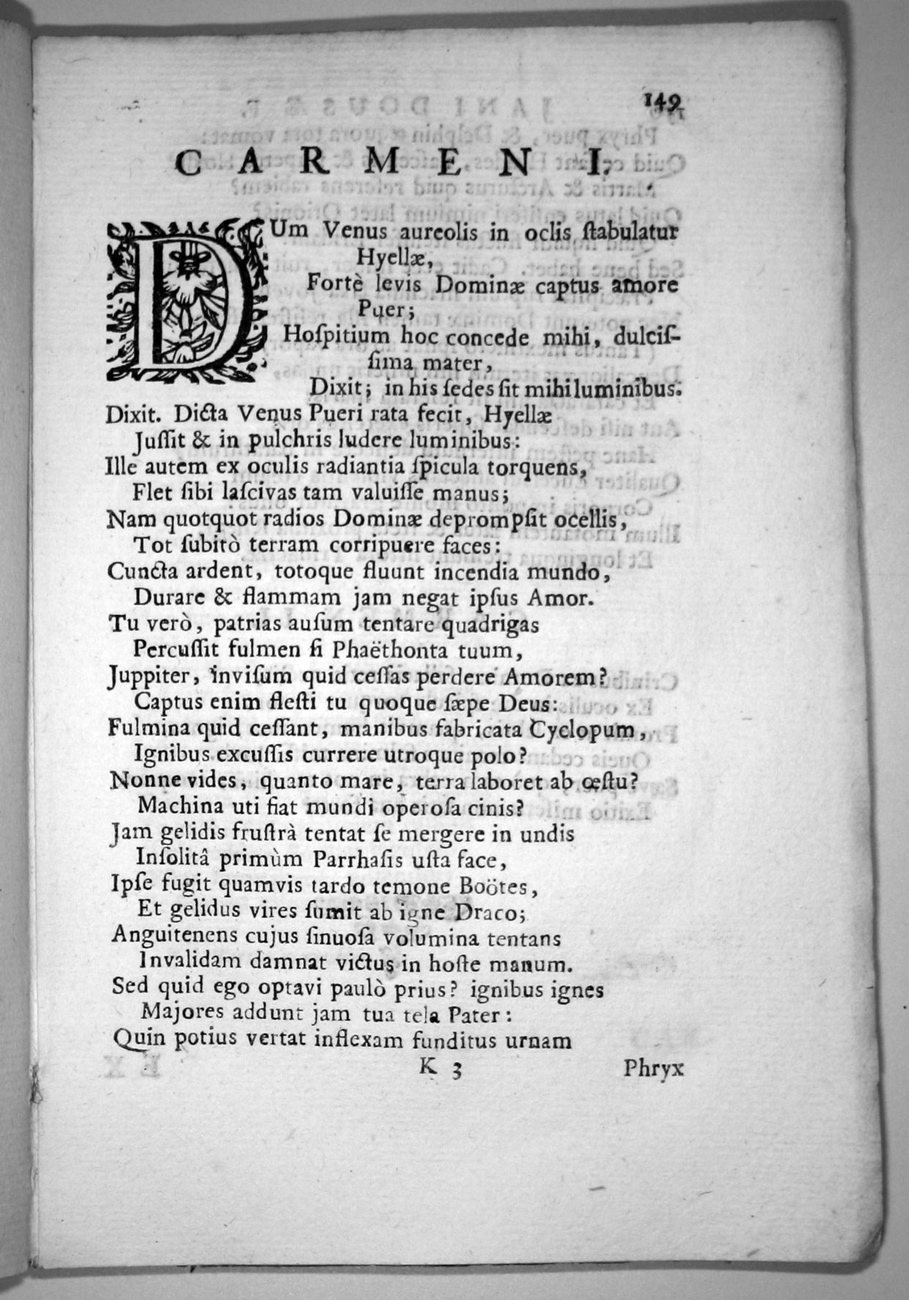 149
CARMEN I.
DUm Venus aureolis in oclis ſtabulatur
Hyellæ,
Fortè levis Dominæ captus amore
Puer;
Hoſpitium hoc concede mihi, dulciſ-
ſima mater,
Dixit; in his ſedes ſit mihi luminibus.
Dixit. Dicta Venus Pueri rata fecit, Hyellæ
Juſſit & in pulchris ludere luminibus:
Ille autem ex oculis radiantia ſpicula torquens,
Flet ſibi laſcivas tam valuiſſe manus;
Nam quotquot radios Dominæ deprompſit ocellis,
Tot ſubitò terram corripuere faces:
Cuncta ardent, totoque fluunt incendia mundo,
Durare & flammam jam negat ipſus Amor.
Tu verò, patrias auſum tentare quadrigas
Percuſſit fulmen ſi Phaëthonta tuum,
Juppiter, inviſum quid ceſſas perdere Amorem?
Captus enim fleſti tu quoque ſæpe Deus:
Fulmina quid ceſſant, manibus fabricata Cyclopum,
Ignibus excuſſis currere utroque polo?
Nonne vides, quanto mare, terra laboret ab œſtu?
Machina uti fiat mundi operoſa cinis?
Jam gelidis fruſtrà tentat ſe mergere in undis
Inſolitâ primùm Parrhaſis uſta face,
Ipſe fugit quamvis tardo temone Boötes,
Et gelidus vires ſumit ab igne Draco;
Anguitenens cujus ſinuoſa volumina tentans
Invalidam damnat victus in hoſte manum.
Sed quid ego optavi paulò prius? ignibus ignes
Majores addunt jam tua tela Pater:
Quin potius vertat inflexam funditus urnam
K 3 Phryx